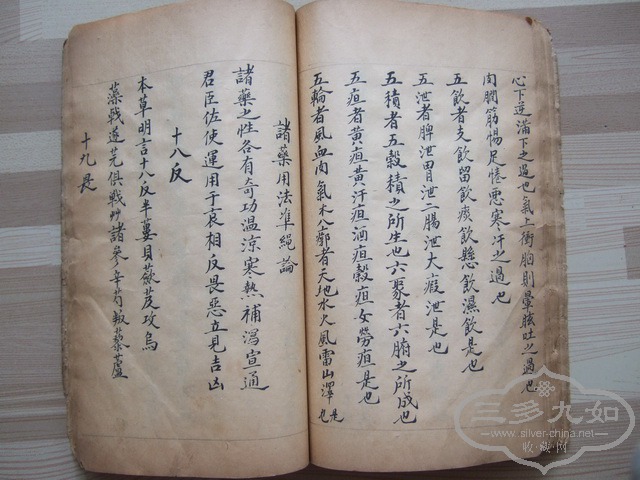 心下逆滿下之過也氣上衝胸則暈眩吐之過也
肉瞤筋惕足惓恶寒汗之過也
五飲者支飲留飲痰飲懸飲濕飲是也
五泄者脾泄胃泄二腸泄大瘕泄是也
五積者五穀積之所生也六聚者六腑之所成也
五疸者黃疸黃汗疸酒疸穀疸女勞疸是也
五輪者風血肉氣木八廓者天地水火風雷山澤是也
諸藥用法準繩論
諸藥之性各有奇功温涼寒熱補瀉宣通
君臣佐使運用于衷相反畏恶立見吉凶
十八反
本草明言十八反半蔞貝蘞芨攻烏
藻戟遂芫俱戰草諸參辛芍叛藜蘆
十九畏
三多九如
www.silver-china.net
收藏网